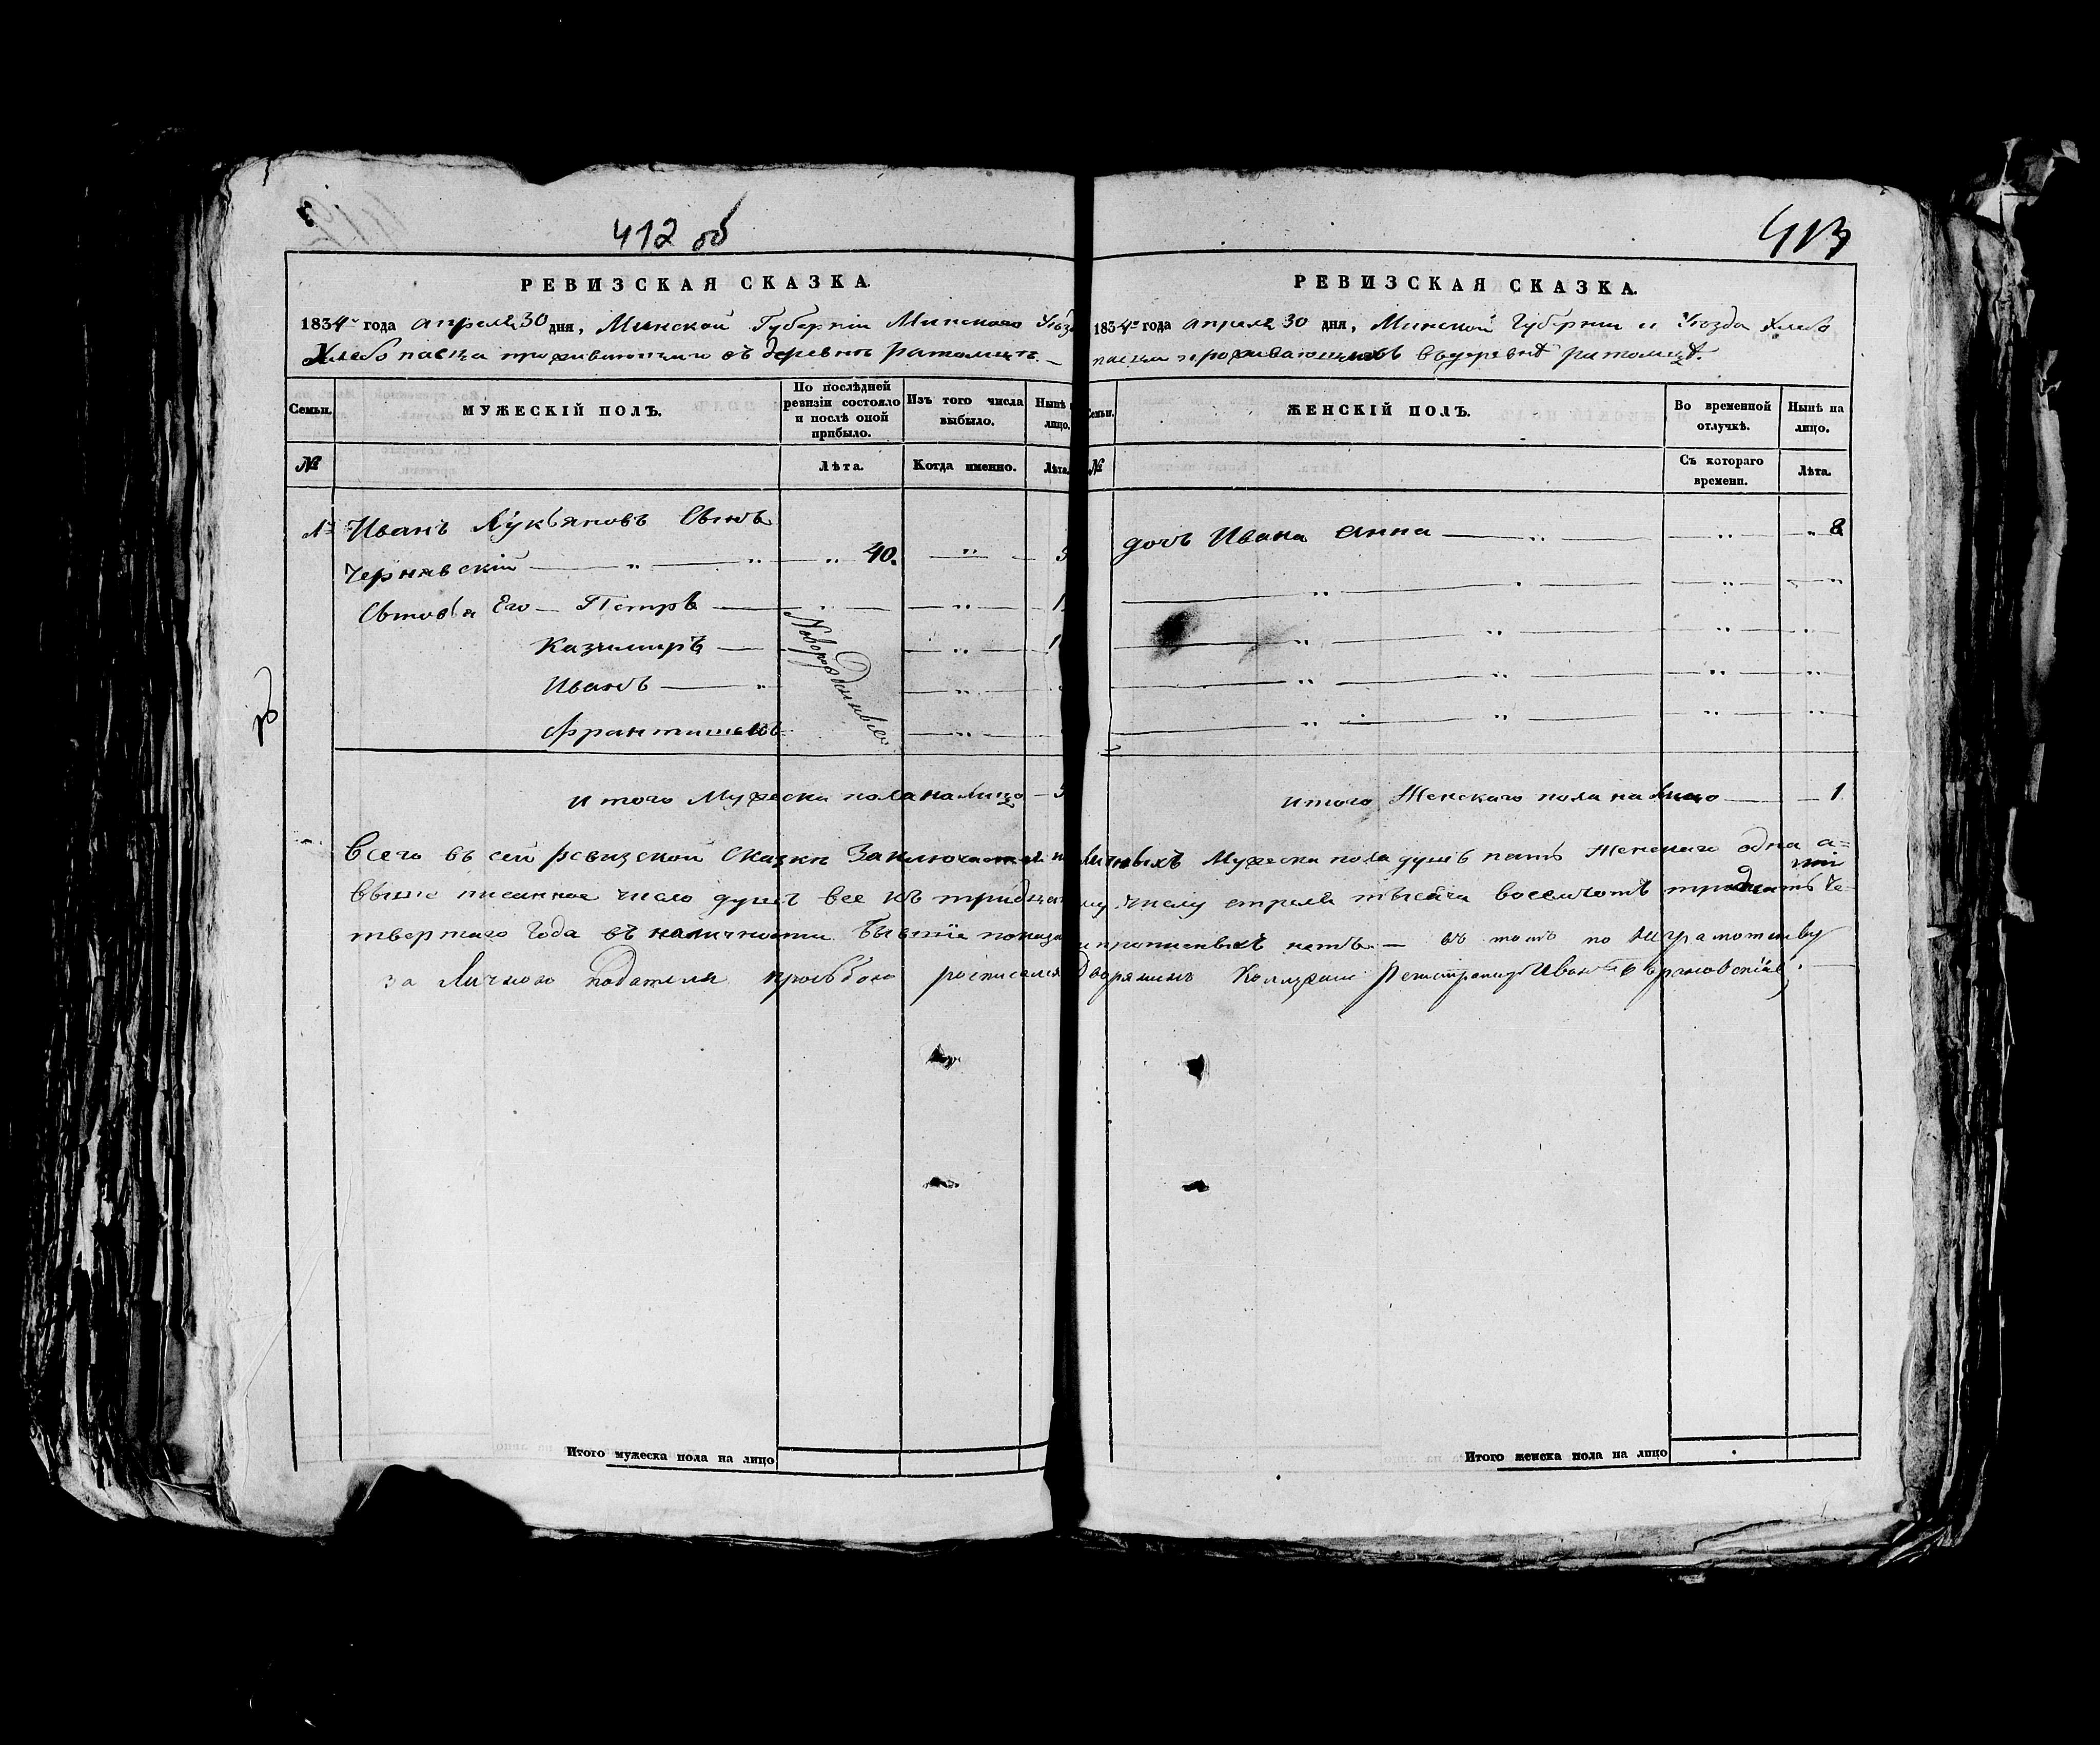 412 об
РЕВИЗСКАЯ СКАЗКА.
1834го года апреля 30 дня, Минской Губерніи Минского Уѣз
Хлебопасца проживающаго въ деревнѣ ратомцѣ. —
Семьи.
МУЖЕСКІЙ ПОЛЪ.
По послѣдней ревизіи состояло и послѣ оной прибыло.
Изъ того числа выбыло.
Нынѣ лицо.
№
Лѣта.
Когда именно.
Лѣта.
№ Иванъ Лукьяновъ Сынъ
Чернявскій — „ — „ — „ 40. — „ —
Сыновья Его — Петръ — „ — „ — 1
Казимиръ — — „ — 1
Иванъ — „ — „ —
Франтишекъ — „ —
Новорожденные
итого Мужеска пола налицо — 5
413
РЕВИЗСКАЯ СКАЗКА.
1834го года апреля 30 дня, Минской Губерніи и Уѣзда Хлебо
пасца проживающихъ въ деревнѣ ратомцѣ.
Семьи.
ЖЕНСКІЙ ПОЛЪ.
Во временной отлучкѣ.
Нынѣ на лицо.
№
Съ котораго времени.
Лѣта.
дочь Ивана Анна — „ — „ — „ 8
итого Женскаго пола налицо — 1
Всего въ сей ревизской сказки Заключается наличныхъ Мужеска пола душъ пять Женскаго одна а=
выше писанное число душъ все къ тридцатому числу апреля тысяча восемьсотъ тридцать че-
твертаго Года въ наличности Бывшіе показаны прописныхъ нетъ. — въ томъ по неграмотству
за Личною подателя прозьбою росписался Дворянинъ Иванъ
Итого мужеска пола на лицо
Итого женска пола на лицо